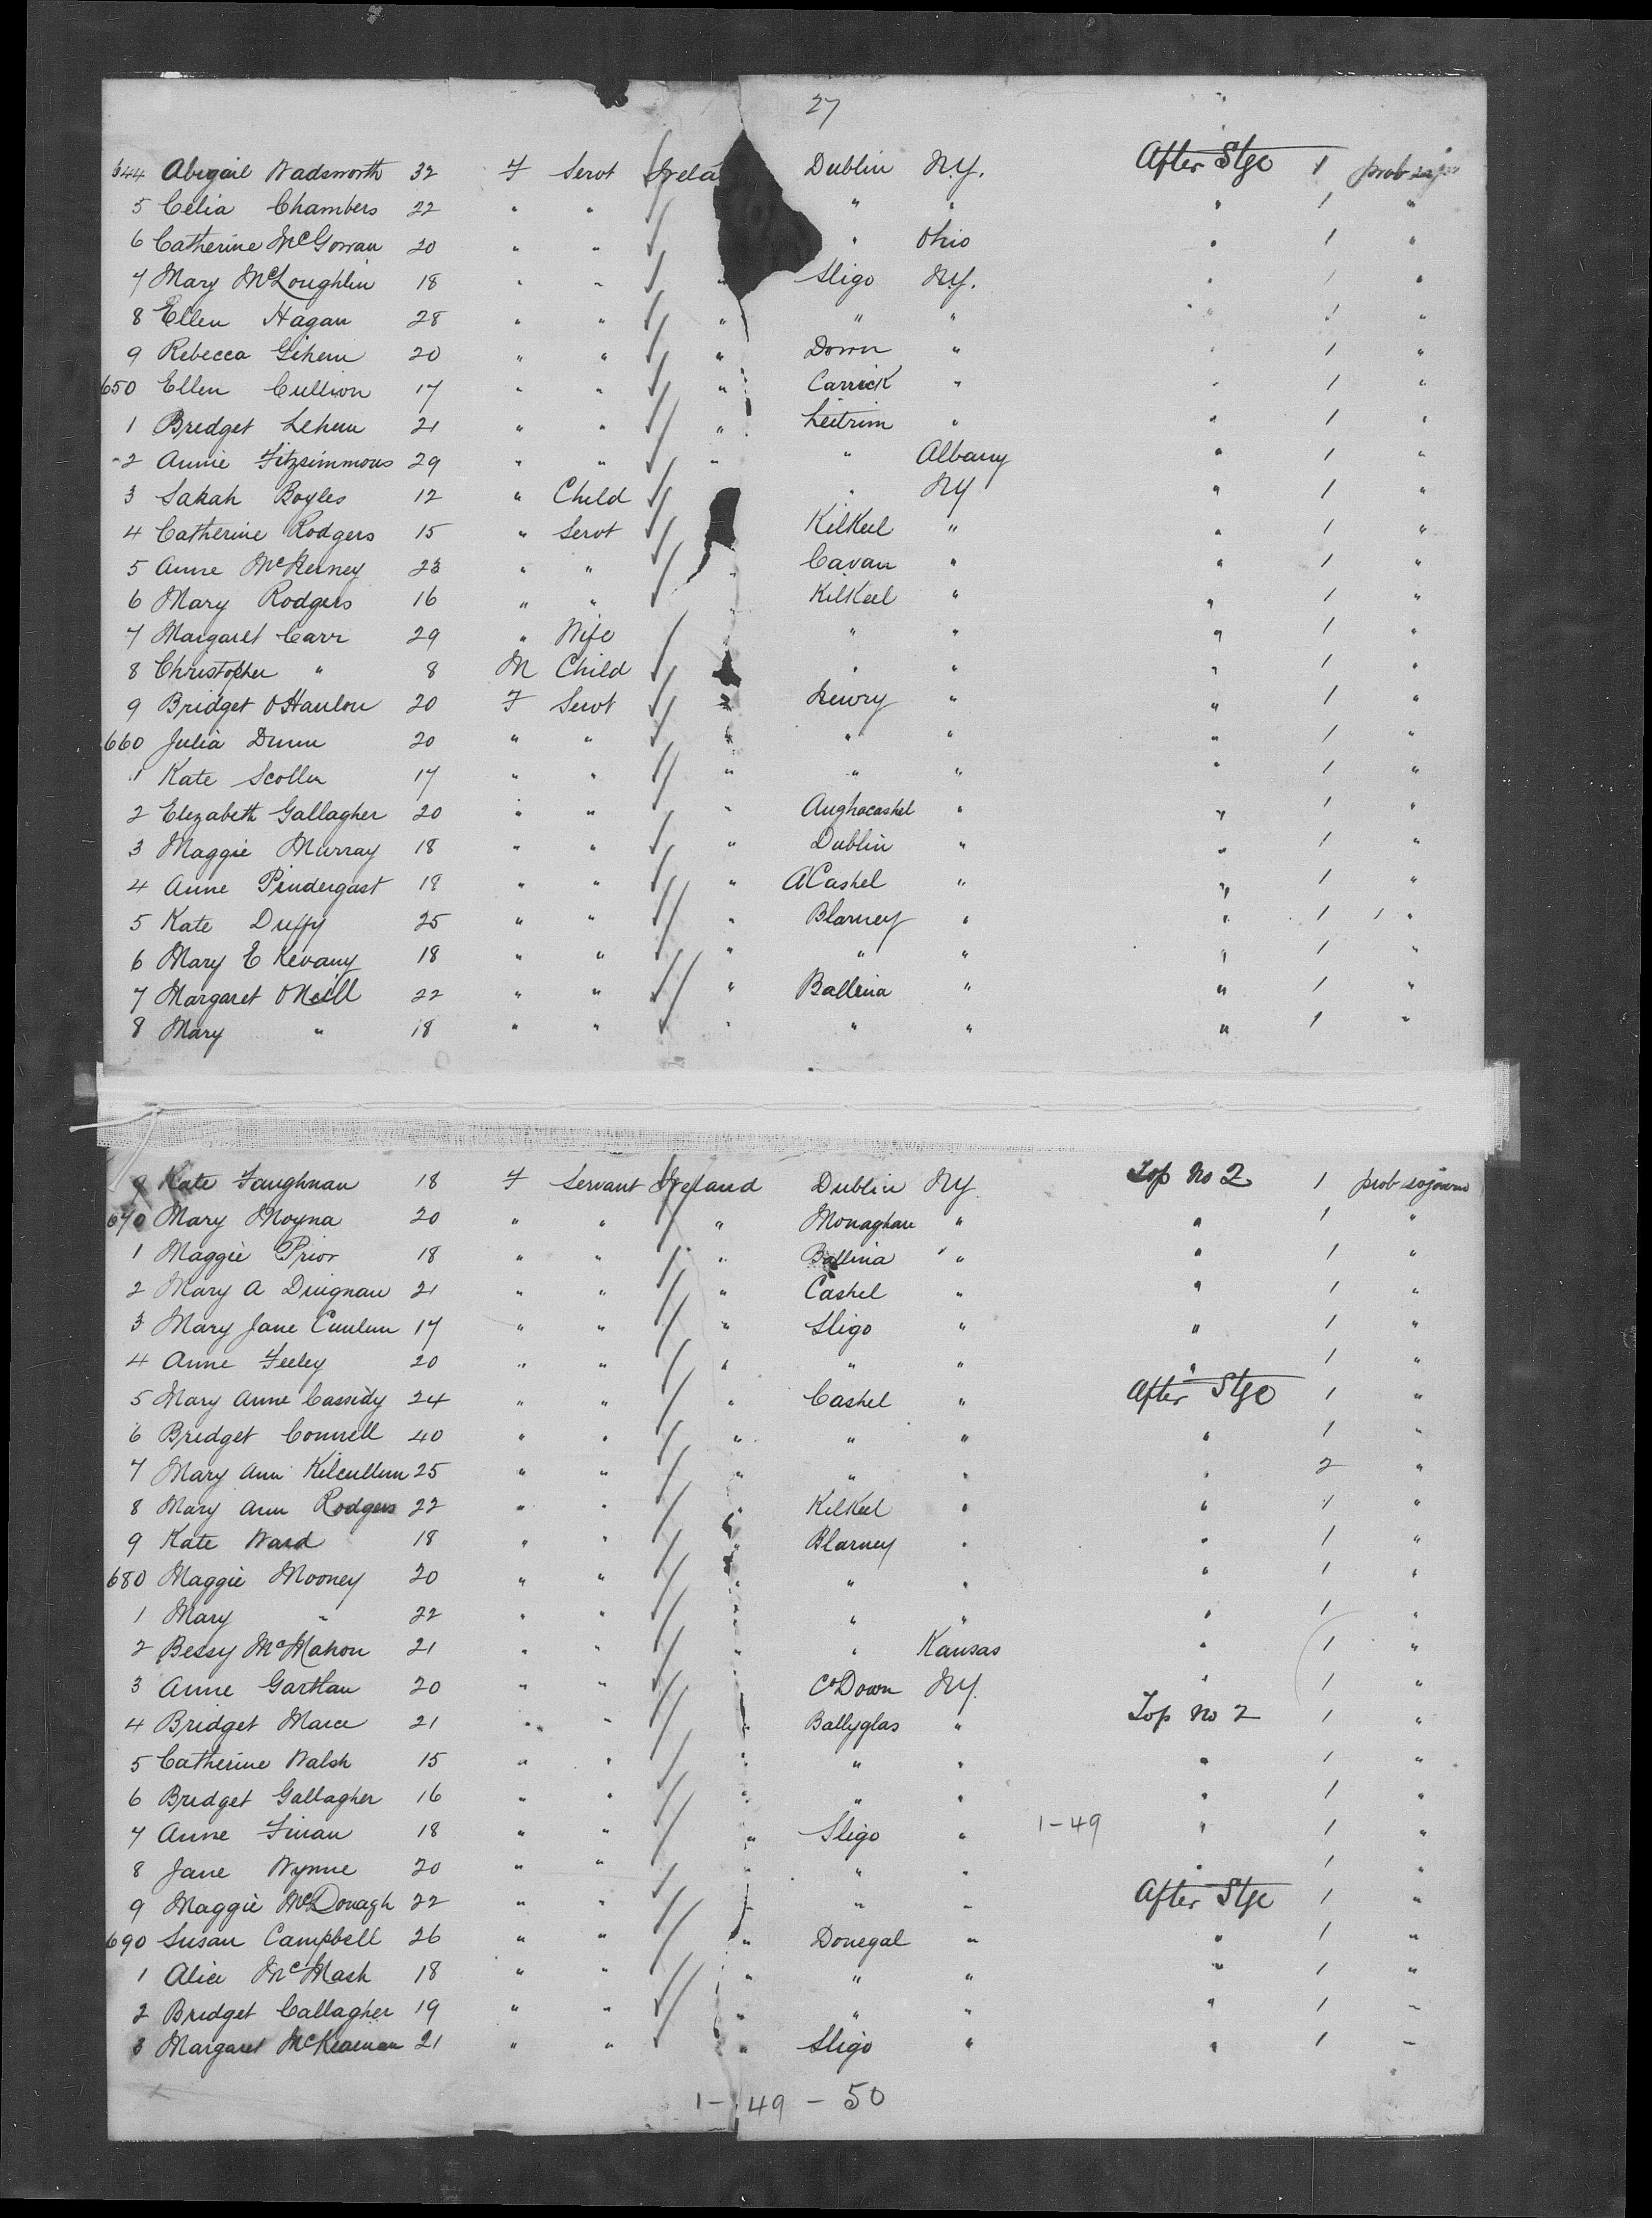 27
644 Abigail Wadsworth 32 F Servt Irela Dublin N.Y. After Stge 1 prob
5 Celia Chambers 22 " " " " " 1 "
6 Catherine McGowan 20 " " " Ohio " 1 "
7 Mary McLoughlin 18 " " " Sligo N.Y. " 1 "
8 Ellen Hagan 28 " " " " " " 1 "
9 Rebecca Gihem 20 " " " Down " " 1 "
650 Ellen Cullion 17 " " " Carrick " " 1 "
1 Bridget Lehem 21 " " " Leitrim " " 1 "
2 Annie Fitzsimmons 29 " " " " Albany " 1 "
3 Sarah Boyles 12 " Child " NY " 1 "
4 Catherine Rodgers 15 " Servt Kilkeel " " 1 "
5 Anne McKerney 23 " " " Cavan " " 1 "
6 Mary Rodgers 16 " " " Kilkeel " " 1 "
7 Margaret Carr 29 " Wife " " " " 1 "
8 Christopher " 8 M Child " " " 1 "
9 Bridget OHanlon 20 F Servt " Newry " " 1 "
660 Julia Dunn 20 " " " " " " 1 "
1 Kate Scollen 17 " " " " " " 1 "
2 Elizabeth Gallagher 20 " " " Aughacashel " " 1 "
3 Maggie Murray 18 " " " Dublin " " 1 "
4 Anne Pendergast 18 " " " A'Cashel " " 1 "
5 Kate Duffy 25 " " " Blarney " " 1 "
6 Mary E Kevany 18 " " " " " " 1 "
7 Margaret ONeill 22 " " " Ballina " " 1 "
8 Mary " 18 " " " " " " 1 "
9 Kate Faughnan 18 F Servant Ireland Dublin NY Top No 2 1 prob sojourn
670 Mary Moyna 20 " " " Monaghan " " 1 "
1 Maggie Prior 18 " " " Ballina " " 1 "
2 Mary A Duignan 21 " " " Cashel " " 1 "
3 Mary Jane Cunlun 17 " " " Sligo " " 1 "
4 Anne Feeley 20 " " " " " " 1 "
5 Mary Anne Cassidy 24 " " " Cashel " After Stge 1 "
6 Bridget Connell 40 " " " " " " 1 "
7 Mary Ann Kilcullen 25 " " " " " " 2 "
8 Mary Ann Rodgers 22 " " " Kilkeel " " 1 "
9 Kate Ward 18 " " " Blarney " " 1 "
680 Maggie Mooney 20 " " " " " " 1 "
1 Mary " 22 " " " " " " 1 "
2 Bessy McMahon 21 " " " " Kansas " 1 "
3 Anne Garthan 20 " " Co Down NY. " 1 "
4 Bridget Maree 21 " " " Ballyglas " Top No 2 1 "
5 Catherine Walsh 15 " " " " " " 1 "
6 Bridget Gallagher 16 " " " " " " 1 "
7 Anne Finan 18 " " " Sligo " 1-49 " 1 "
8 Jane Wynne 20 " " " " " " 1 "
9 Maggie McDonagh 22 " " " " " After Stge 1 "
690 Susan Campbell 26 " " " Donegal " " 1 "
1 Alice McMash 18 " " " " " " 1 "
2 Bridget Callagher 19 " " " " " " 1 "
3 Margaret McKiernan 21 " " " Sligo " " 1 "
1-49-50